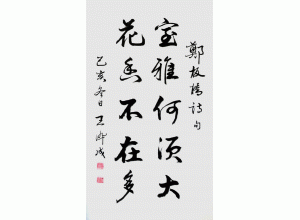 鄭板橋詩句
室雅何須大
花香不在多
乙亥冬日王